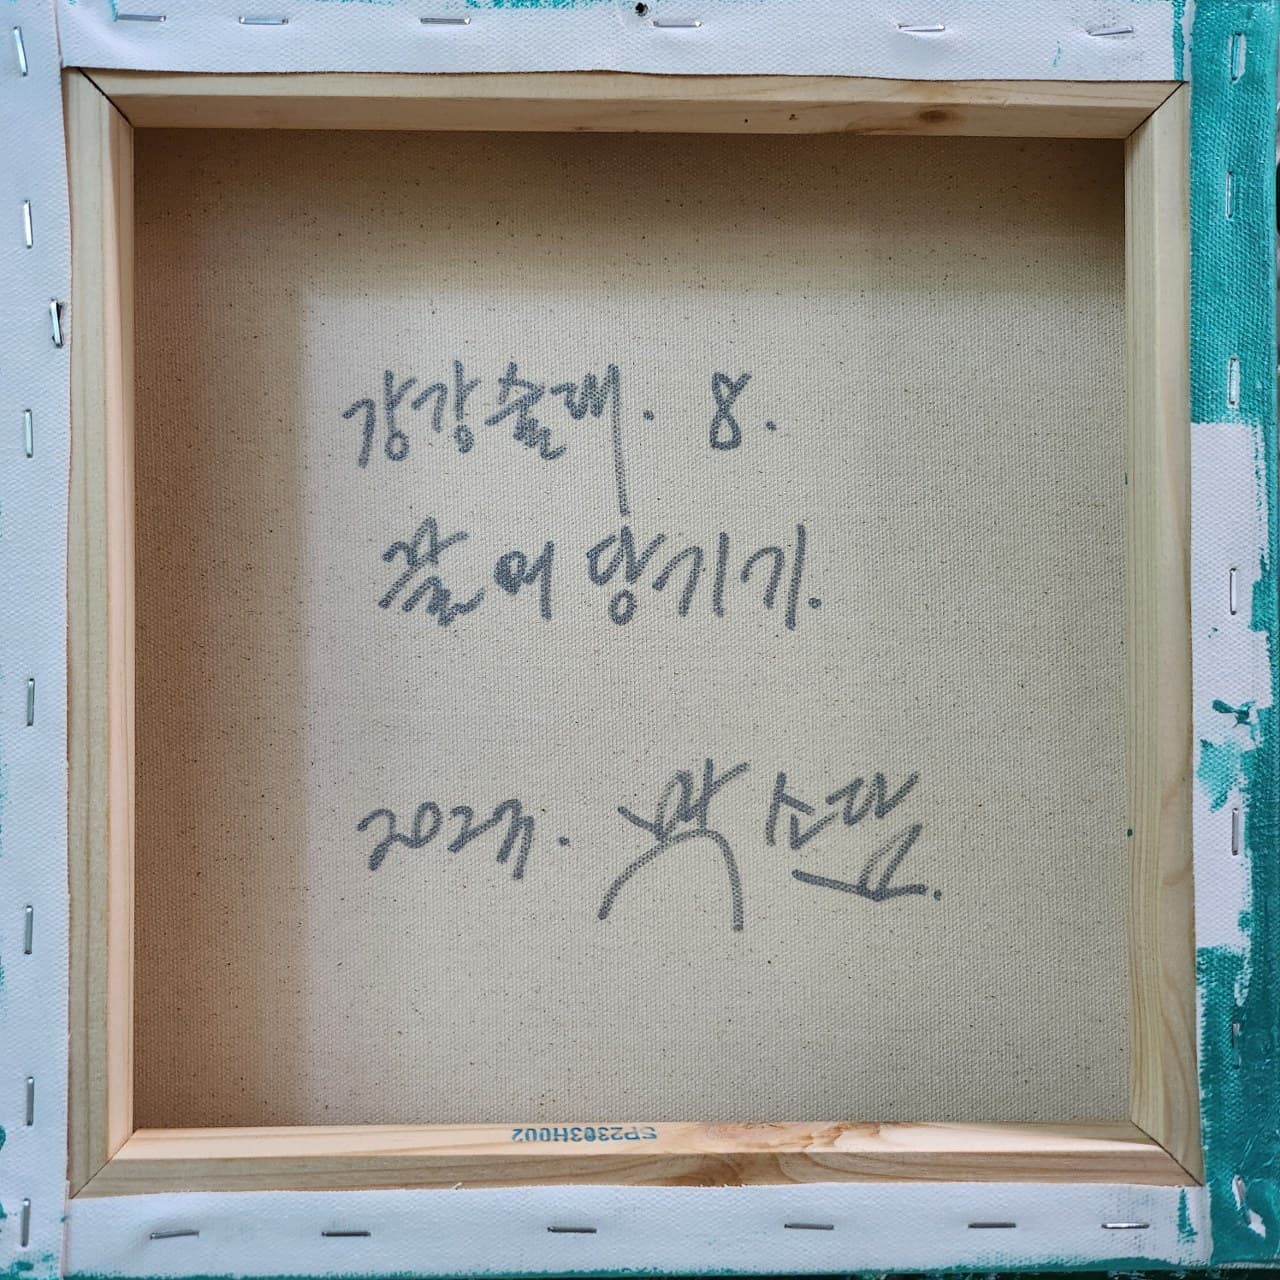 강강술래. 8.
끌어당기기.
2023.
SP2303H002